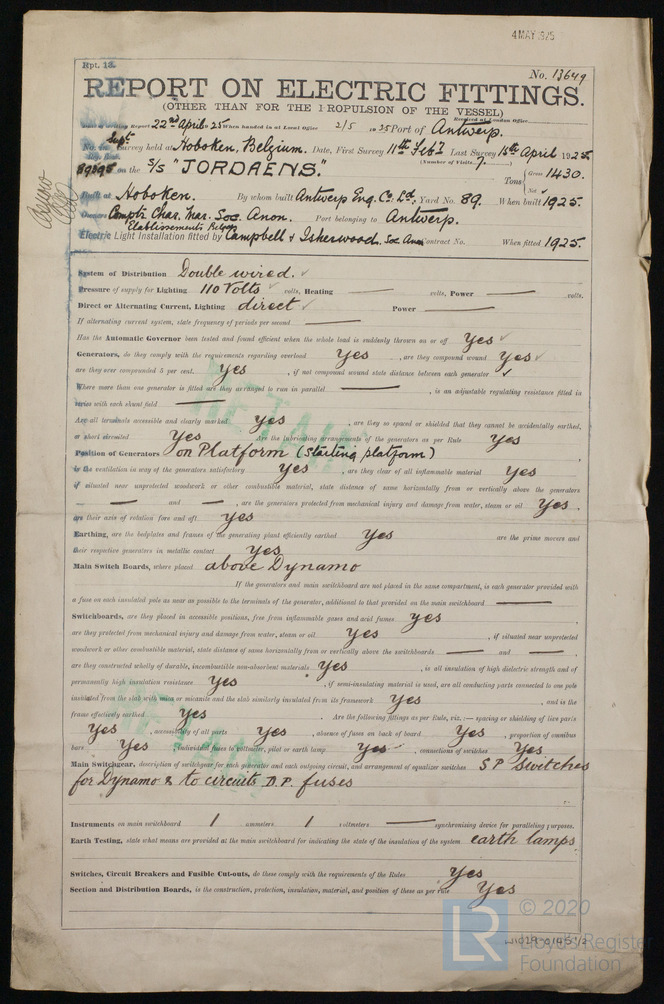 4 MAY 1925
Rpt. 13.
No. 13649
REPORT ON ELECTRIC FITTINGS.
(OTHER THAN FOR THE PROPULSION OF THE VESSEL)
Received at London Office
Date of writing Report 22nd April 1925 When handed in at Local Office 2/5 1925 Port of Antwerp.
No. in Survey held at Hoboken, Belgium. Date, First Survey 11th Feb? Last Survey 18th April 1925
(Number of Visits 7.
89595 on the S/S "JORDAENS." Tons Gross 1430. Net
Built at Hoboken. By whom built Antwerp Eng. Co. Ld. Yard No. 89. When built 1925.
Owners Comptr. Char. Mar. Soc. Anon. Port belonging to Antwerp.
Electric Light Installation fitted by Campbell & Isherwood. Soc. Anon Contract No. When fitted 1925.
System of Distribution Double wired.
Pressure of supply for Lighting 110 Volts volts, Heating — volts, Power — volts.
Direct or Alternating Current, Lighting direct Power —
If alternating current system, state frequency of periods per second —
Has the Automatic Governor been tested and found efficient when the whole load is suddenly thrown on or off Yes
Generators, do they comply with the requirements regarding overload Yes , are they compound wound Yes
are they over compounded 5 per cent. Yes , if not compound wound state distance between each generator
Where more than one generator is fitted are they arranged to run in parallel — , is an adjustable regulating resistance fitted in
series with each shunt field —
Are all terminals accessible and clearly marked Yes , are they so spaced or shielded that they cannot be accidentally earthed,
or short circuited Yes Are the lubricating arrangements of the generators as per Rule Yes
Position of Generators on Platform (Starting platform)
is the ventilation in way of the generators satisfactory Yes , are they clear of all inflammable material Yes
if situated near unprotected woodwork or other combustible material, state distance of same horizontally from or vertically above the generators
— and — , are the generators protected from mechanical injury and damage from water, steam or oil Yes
are their axis of rotation fore and aft Yes
Earthing, are the bedplates and frames of the generating plant efficiently earthed Yes are the prime movers and
their respective generators in metallic contact Yes
Main Switch Boards, where placed above Dynamo
If the generators and main switchboard are not placed in the same compartment, is each generator provided with
a fuse on each insulated pole as near as possible to the terminals of the generator, additional to that provided on the main switchboard —
Switchboards, are they placed in accessible positions, free from inflammable gases and acid fumes Yes
are they protected from mechanical injury and damage from water, steam or oil Yes , if situated near unprotected
woodwork or other combustible material, state distance of same horizontally from or vertically above the switchboards — and — ,
are they constructed wholly of durable, incombustible non-absorbent materials Yes , is all insulation of high dielectric strength and of
permanently high insulation resistance Yes , if semi-insulating material is used, are all conducting parts connected to one pole
insulated from the slab with mica or micanite and the slab similarly insulated from its framework Yes , and is the
frame effectively earthed Yes . Are the following fittings as per Rule, viz.:— spacing or shielding of live parts
Yes , accessibility of all parts Yes , absence of fuses on back of board Yes , proportion of omnibus
bars Yes , individual fuses to voltmeter, pilot or earth lamp Yes , connections of switches Yes
Main Switchgear, description of switchgear for each generator and each outgoing circuit, and arrangement of equalizer switches S P Switches
for Dynamo & to circuits D.P. fuses
Instruments on main switchboard 1 ammeters 1 voltmeters — synchronising device for paralleling purposes.
Earth Testing, state what means are provided at the main switchboard for indicating the state of the insulation of the system earth lamps
Switches, Circuit Breakers and Fusible Cut-outs, do these comply with the requirements of the Rules Yes
Section and Distribution Boards, is the construction, protection, insulation, material, and position of these as per rule Yes
LR
© 2020
Lloyd's Register
Foundation